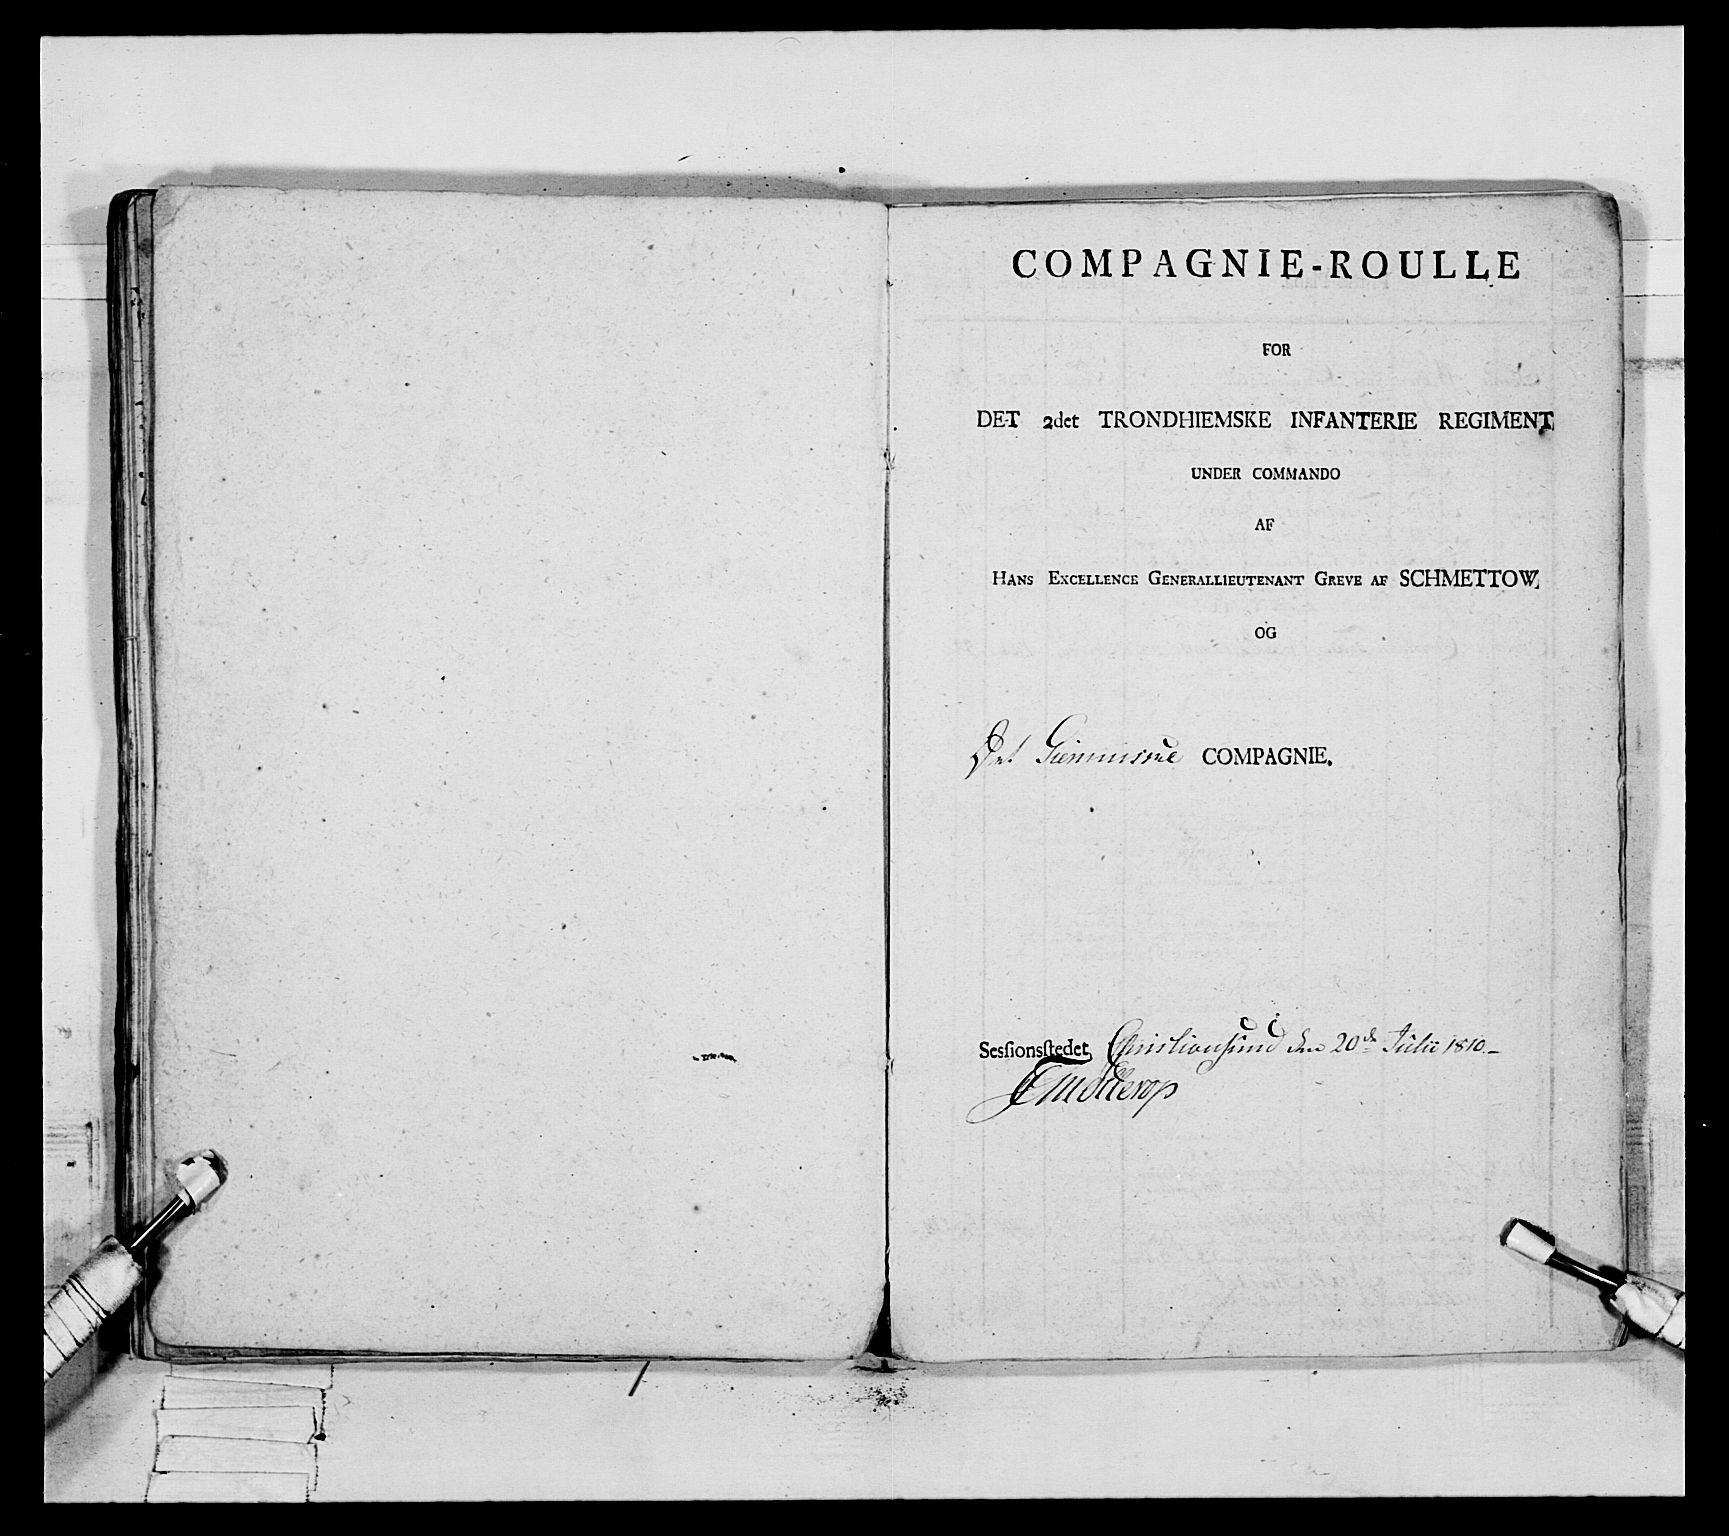 COMPAGNIE-ROULLE
FOR
DET 2det TRONDHIEMSKE INFANTERIE REGIMENT
UNDER COMMANDO
AF
HANS EXCELLENCE GENERALLIEUTENANT GREVE AF SCHMETTOW,
OG
Det COMPAGNIE.
Sesſionsſtedet, Christiansund den 20de Julii 1810.